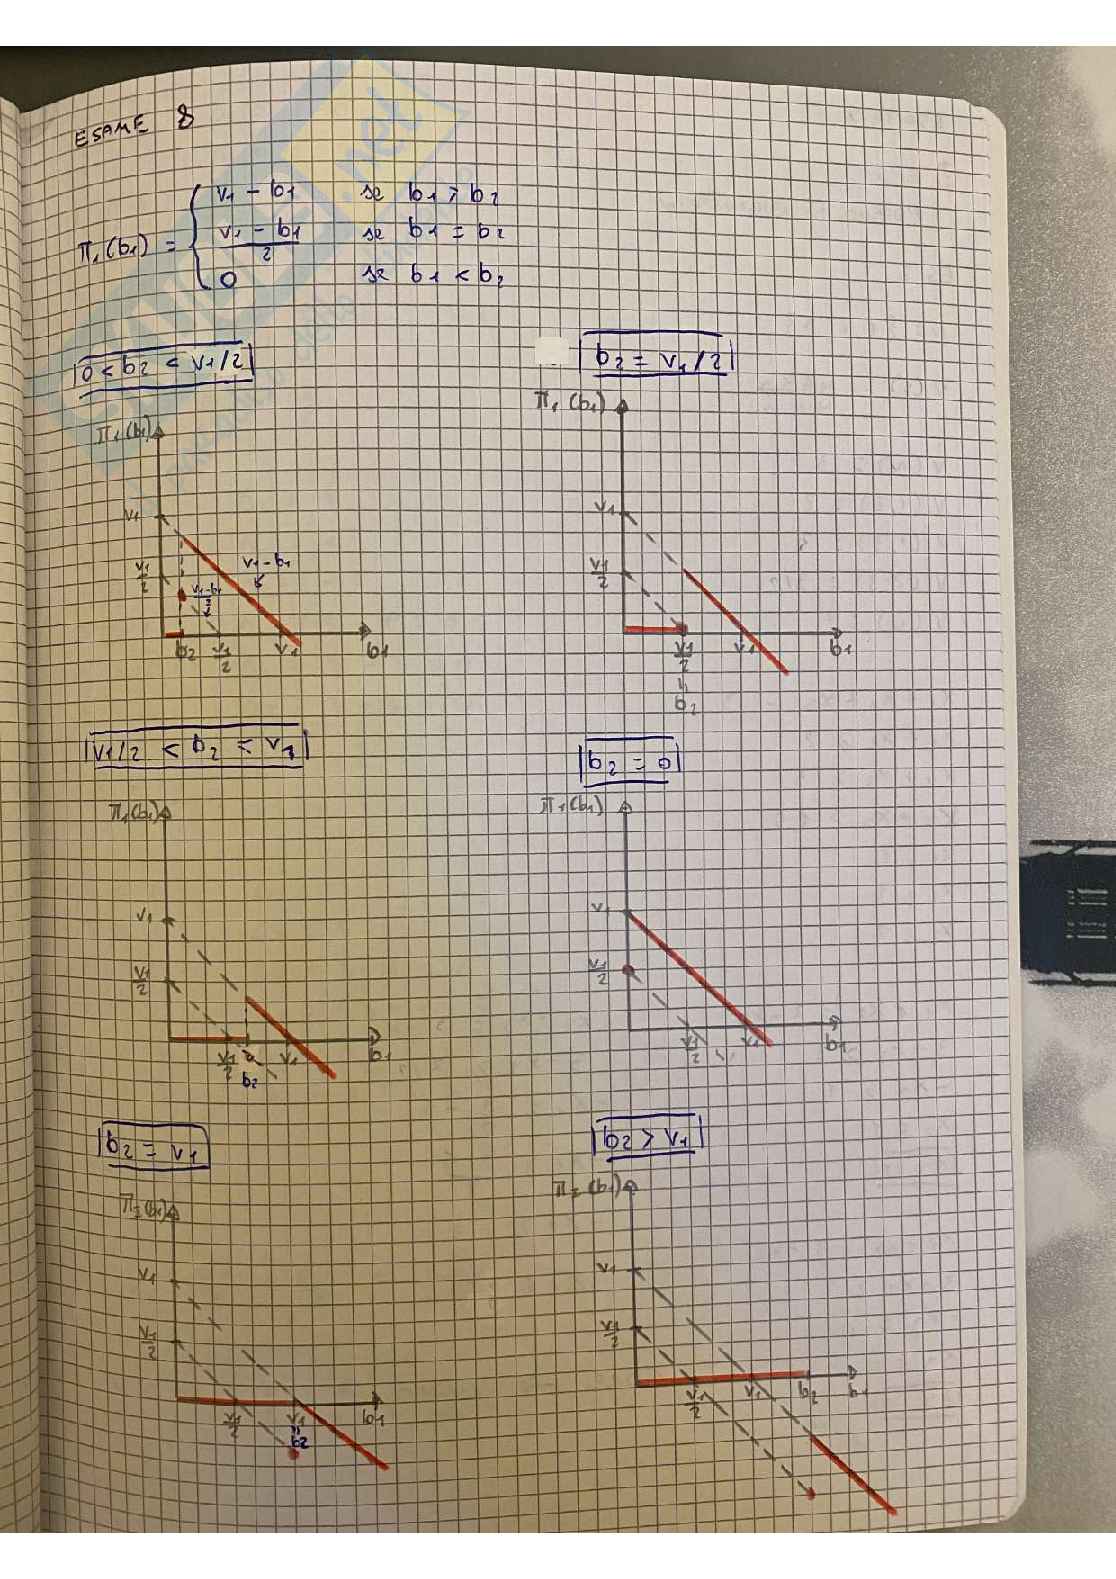 ESAME 8
π₁(b₁) = { v₁ - b₁ se b₁ > b₂
v₁ - b₁ / 2 se b₁ = b₂
0 se b₁ < b₂
0 < b₂ < v₁/2
b₂ = v₁/2
π₁(b₁)
v₁
v₁/2
v₁ - b₁
v₁-b₁/2
b₂ v₁/2 v₁ b₁
π₁(b₁)
v₁
v₁/2
v₁/2 v₁ b₁
=
b₂
v₁/2 < b₂ < v₁
b₂ = 0
π₁(b₁)
v₁
v₁/2
v₁/2 v₁ b₁
b₂
π₁(b₁)
v₁
v₁/2
v₁/2 v₁ b₁
b₂ = v₁
b₂ > v₁
π₁(b₁)
v₁
v₁/2
v₁/2 v₁ b₁
=
b₂
π₁(b₁)
v₁
v₁/2
v₁/2 v₁ b₂ b₁